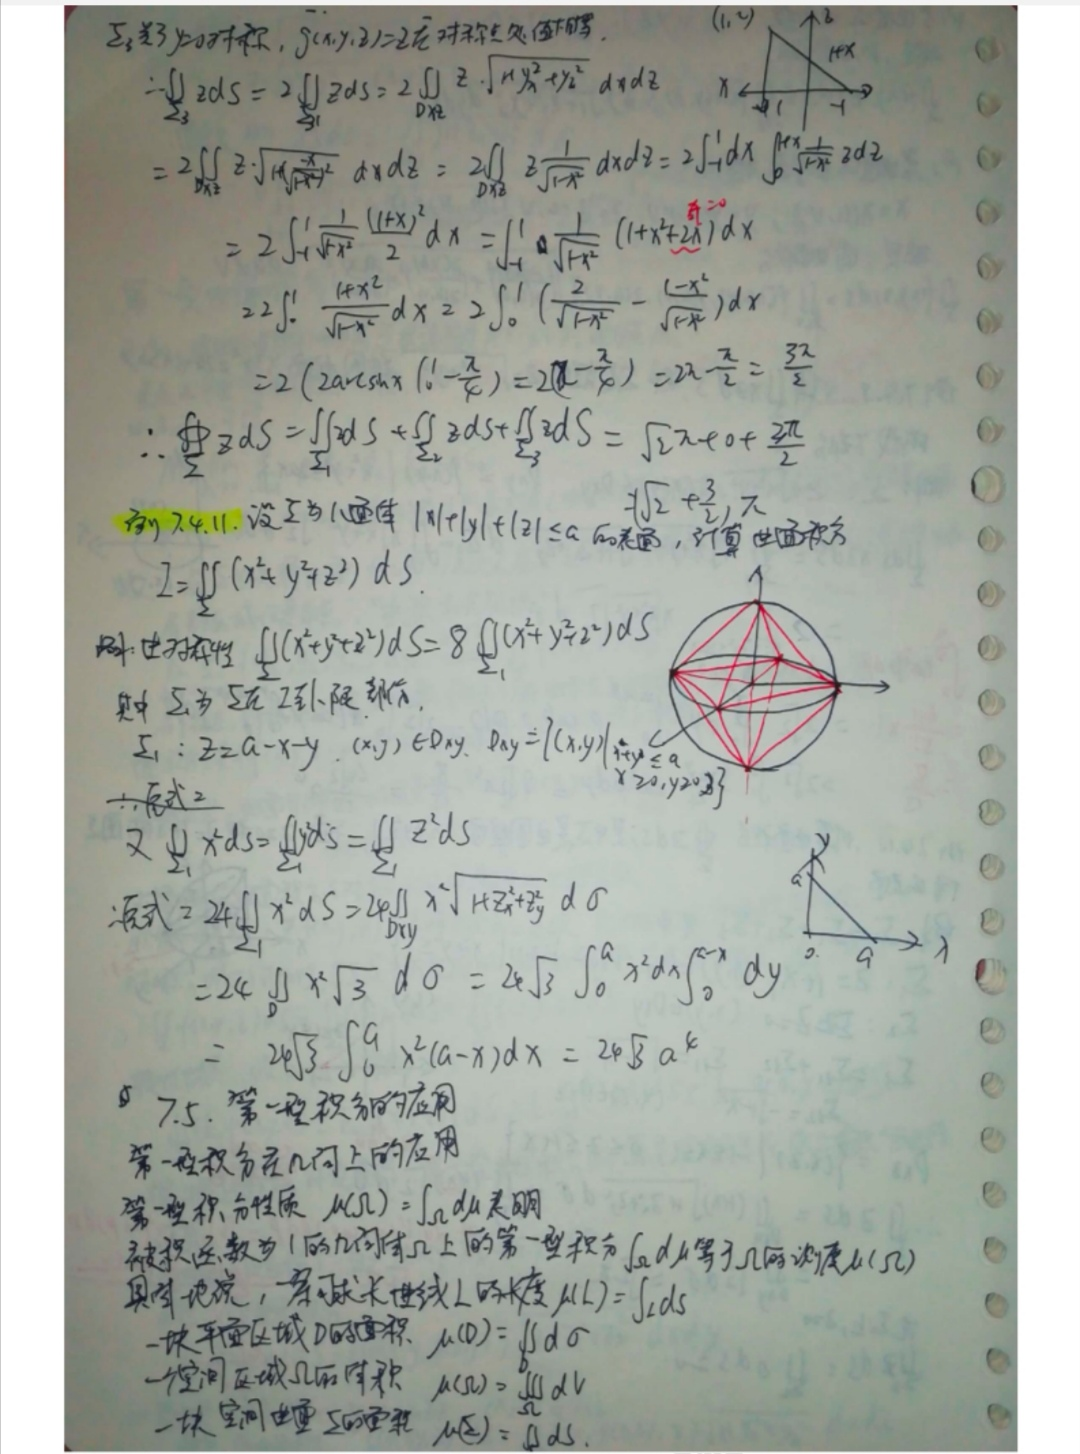 Σ₃关于y=0对称，g(x,y,z)=z在对称点处值相等.
∴∬_Σ₃ zdS = 2∬_Σ₃₁ zdS = 2∬_Dxz z·√(1+y_x²+y_z²) dxdz
= 2∬_Dxz z·√(1+(-x/√(1-x²))²) dxdz = 2∬_Dxz z 1/√(1-x²) dxdz = 2∫_-1^1 dx ∫_0^(1+x) 1/√(1-x²) zdz
= 2∫_-1^1 1/√(1-x²) (1+x)²/2 dx = ∫_-1^1 1/√(1-x²) (1+x²+2x)dx
奇=0
= 2∫_0^1 (1+x²)/√(1-x²) dx = 2∫_0^1 (2/√(1-x²) - (1-x²)/√(1-x²))dx
= 2(2arcsinx|_0^1 - π/4) = 2(π - π/4) = 2π - π/2 = 3π/2
∴ ∯_Σ zdS = ∬_Σ₁ zdS + ∬_Σ₂ zdS + ∬_Σ₃ zdS = √2π + 0 + 3π/2
=(√2 + 3/2)π
例7.4.11. 设Σ为八面体 |x|+|y|+|z|≤a 的表面，计算曲面积分
I=∬_Σ (x²+y²+z²) dS.
解：由对称性 ∬_Σ (x²+y²+z²)dS = 8∬_Σ₁ (x²+y²+z²)dS
其中Σ₁为Σ在I卦限部分.
Σ₁：z=a-x-y. (x,y)∈Dxy. Dxy={(x,y)|x+y≤a
x≥0,y≥0}
∴原式=
又 ∬_Σ₁ x²dS = ∬_Σ₁ y²dS = ∬_Σ₁ z²dS
∴原式 = 24∬_Σ₁ x²dS = 24∬_Dxy x²√(1+z_x²+z_y²) dσ
= 24∬_D x²√3 dσ = 24√3 ∫_0^a x²dx ∫_0^(a-x) dy
= 24√3 ∫_0^a x²(a-x)dx = 24√3 a⁴
7.5. 第一型积分的应用
第一型积分在几何上的应用
第一型积分性质 μ(Ω)=∫_Ω dμ表明
被积函数为1的几何体Ω上的第一型积分∫_Ω dμ等于Ω的测度μ(Ω)
具体地说，一条可求长曲线L的长度μ(L)=∫_L ds
一块平面区域D的面积 μ(D)=∬_D dσ
一空间区域Ω的体积 μ(Ω)=∭_Ω dV
一块空间曲面Σ的面积 μ(Σ)=∬ dS.
z
1+x
x
1
-1
y
a
0
a
x